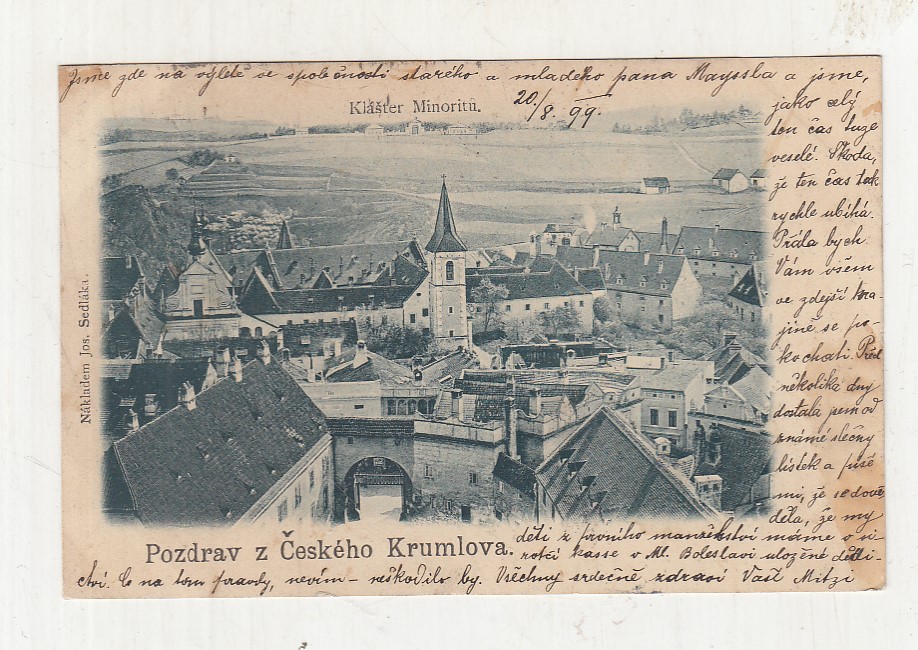 Jsme zde na výletě ve společnosti starého a mladého pana Mayssla a jsme,
Klášter Minoritů.
20/8. 99.
jako celý
ten čas tuze
veselé. Škoda,
že ten čas tak
rychle ubíhá.
Přála bych
Vám všem
ve zdejší kra-
jině se po-
kochati. Před
několika dny
dostala jsem od
známé slečny
lístek a píše
mi, že se dově-
děla, že my
děti z prvního manželství máme v si-
rotčí kasse v Ml. Boleslavi uložené dědi-
ctví. Co na tom pravdy, nevím – neškodilo by. Všechny srdečně zdraví Vaše Mitzi
Nákladem Jos. Sedláka.
Pozdrav z Českého Krumlova.